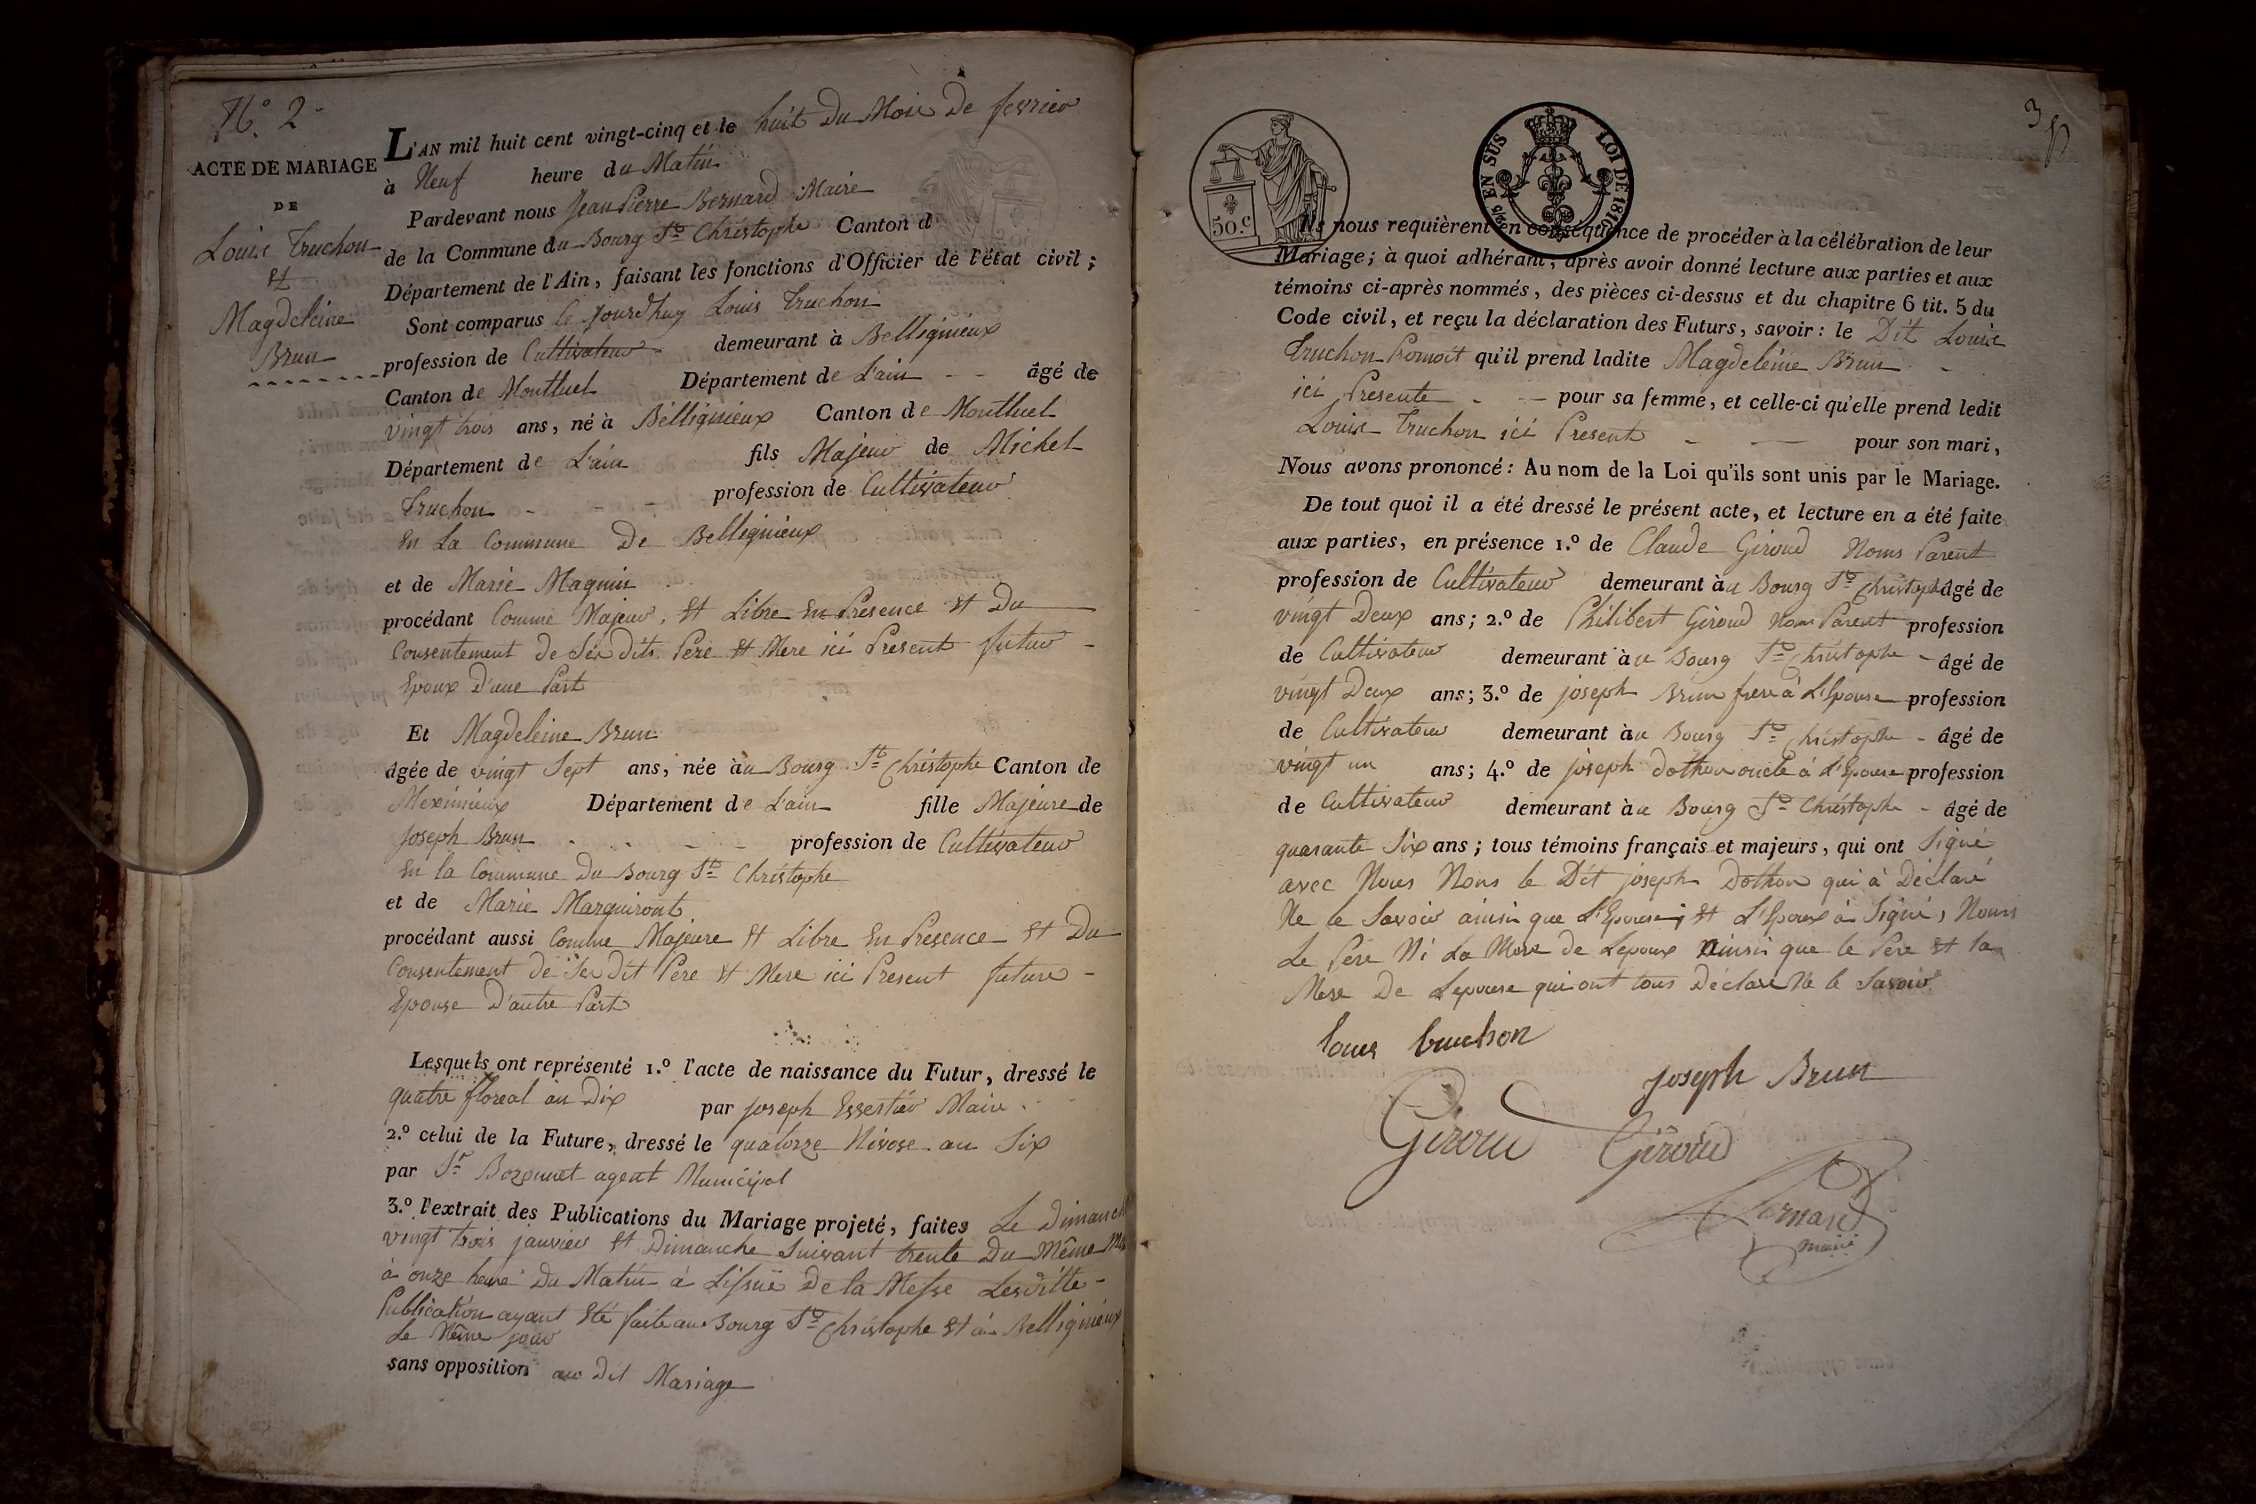 N.º 2.
ACTE DE MARIAGE
DE
Louis Truchon
Et
Magdeleine
Brun
L'AN mil huit cent vingt-cinq et le huit Du Mois De fevrier
à Neuf heure du Matin
Pardevant nous Jean Pierre Bernard Maire
de la Commune du Bourg St Christophe Canton d
Département de l'Ain, faisant les fonctions d'Officier de l'état civil;
Sont comparus le jourdhuy Louis Truchon
profession de Cultivateur demeurant à Belligneux
Canton de Montluel Département de L'ain - - âgé de
vingt trois ans, né à Belligneux Canton de Montluel
Département de L'ain fils Majeur de Michel
Truchon - - - profession de Cultivateur
En La Commune De Belligneux
et de Marie Magnin
procédant Comme Majeur, Et Libre En Présence Et Du
Consentement De Ses Dits Père Et Mere ici Present futur -
Epoux D'une Part
Et Magdeleine Brun
âgée de vingt Sept ans, née àu Bourg St Christophe Canton de
Meximieux Département de L'ain fille Majeure de
Joseph Brun - - - profession de Cultivateur
En la Commune Du Bourg St Christophe
et de Marie Marguiront
procédant aussi Comme Majeure Et Libre En Presence Et Du
Consentement de Ses Dit Pere Et Mere ici Present future -
Epouse D'autre Part
Lesquels ont représenté 1.º l'acte de naissance du Futur, dressé le
quatre floreal an Dix par joseph Essertier Maire
2.º celui de la Future, dressé le quatorze Nivose an Six
par Sr Bozonnet agent Municipal
3.º l'extrait des Publications du Mariage projeté, faites Le Dimanch
vingt trois janvier Et Dimanche Suivant trente Du Même
à onze heure Du Matin à Lissüe De la Messe Lesditte -
Publication ayant Eté faite au Bourg St Christophe Et à Belligneux
Le Même jour
sans opposition au Dit Mariage
3
50.c
EN SUS
LOI DE 1816
Ils nous requièrent en conséquence de procéder à la célébration de leur
Mariage; à quoi adhérant, après avoir donné lecture aux parties et aux
témoins ci-après nommés, des pièces ci-dessus et du chapitre 6 tit. 5 du
Code civil, et reçu la déclaration des Futurs, savoir: le Dit Louis
Truchon Promoit qu'il prend ladite Magdeleine Brun -
ici Presente - - pour sa femme, et celle-ci qu'elle prend ledit
Louis Truchon ici Present - - pour son mari,
Nous avons prononcé: Au nom de la Loi qu'ils sont unis par le Mariage.
De tout quoi il a été dressé le présent acte, et lecture en a été faite
aux parties, en présence 1.º de Claude Giroud Nons Parent
profession de Cultivateur demeurant àu Bourg St Christophe âgé de
vingt Deux ans; 2.º de Philibert Giroud Nons Parent profession
de Cultivateur demeurant àu Bourg St Christophe - âgé de
vingt Deux ans; 3.º de joseph Brun frere à L'Epouse profession
de Cultivateur demeurant àu Bourg St Christophe - âgé de
vingt un ans; 4.º de joseph Dothon oncle à L'Epouse profession
de Cultivateur demeurant àu Bourg St Christophe - âgé de
quarante Six ans; tous témoins français et majeurs, qui ont Signé
avec Nous Nons le Dit joseph Dothon qui à Déclaré
Ne le Savoir ainsi que L'Epouse; Et L'Epoux à Signé, Nons
Le Père Ni La Mere de Lepoux ainsi que le Père Et la
Mere De Lepouse qui ont tous Déclaré Ne le Savoir
louis truchon
joseph Brun
Girou
Giroud
Bernard
maire